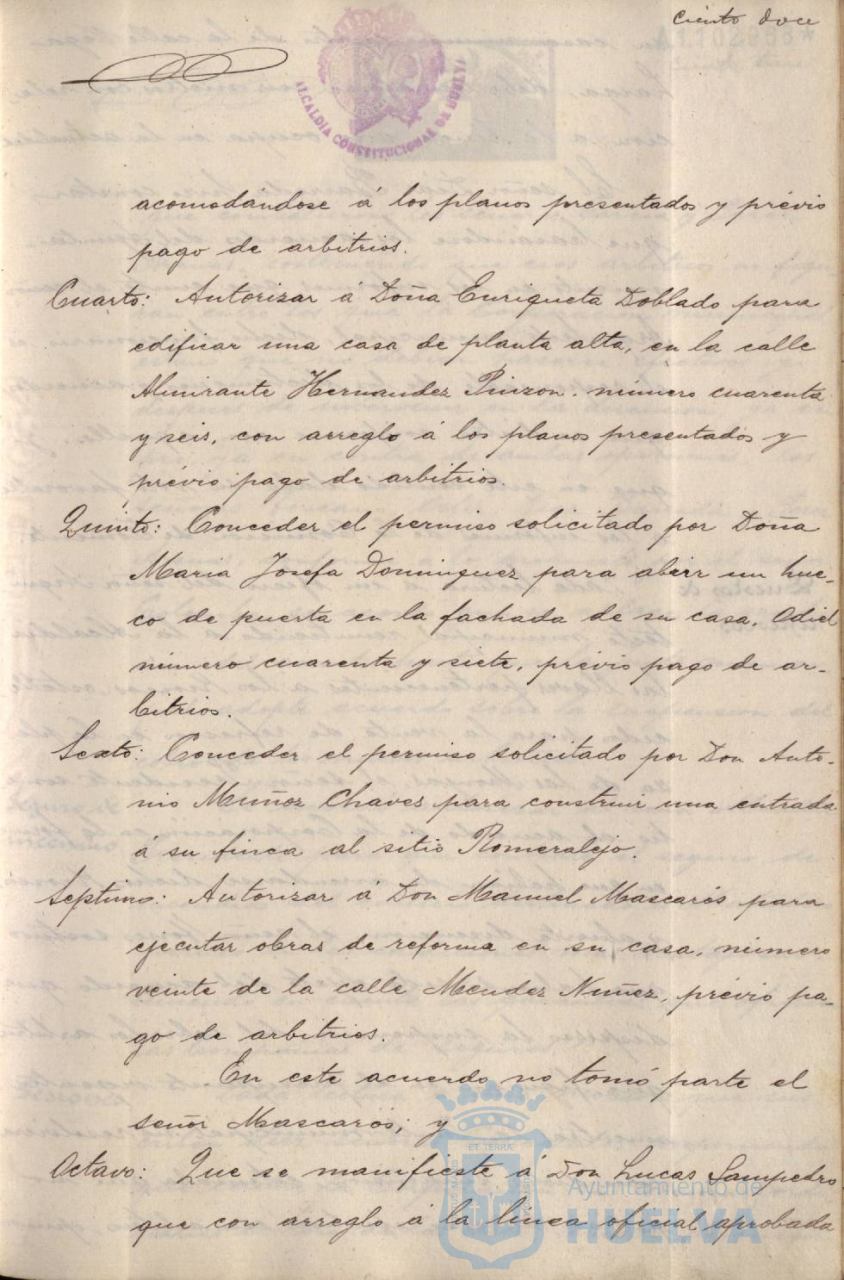 ciento doce
ALCALDÍA CONSTITUCIONAL DE HUELVA
acomodándose á los planos presentados y prévio
pago de arbitrios.
Cuarto: Autorizar á Doña Enriqueta Doblado para
edificar una casa de planta alta, en la calle
Almirante Hernandez Pinzon. número cuarenta
y seis, con arreglo á los planos presentados y
prévio pago de arbitrios.
Quinto: Conceder el permiso solicitado por Doña
Maria Josefa Dominguez para abrir un hue-
co de puerta en la fachada de su casa, Odiel
número cuarenta y siete, prévio pago de ar-
bitrios.
Sexto: Conceder el permiso solicitado por Don Anto-
nio Muñoz Chaves para construir una entrada
á su finca al sitio Romeralejo.
Septimo: Autorizar á Don Manuel Mascarós para
ejecutar obras de reforma en su casa, número
veinte de la calle Mendez Nuñez, prévio pa-
go de arbitrios.
En este acuerdo no tomó parte el
señor Mascarós; y
Octavo: Que se manifieste á Don Lucas Sampedro
que con arreglo á la linea oficial aprobada
Ayuntamiento de
HUELVA